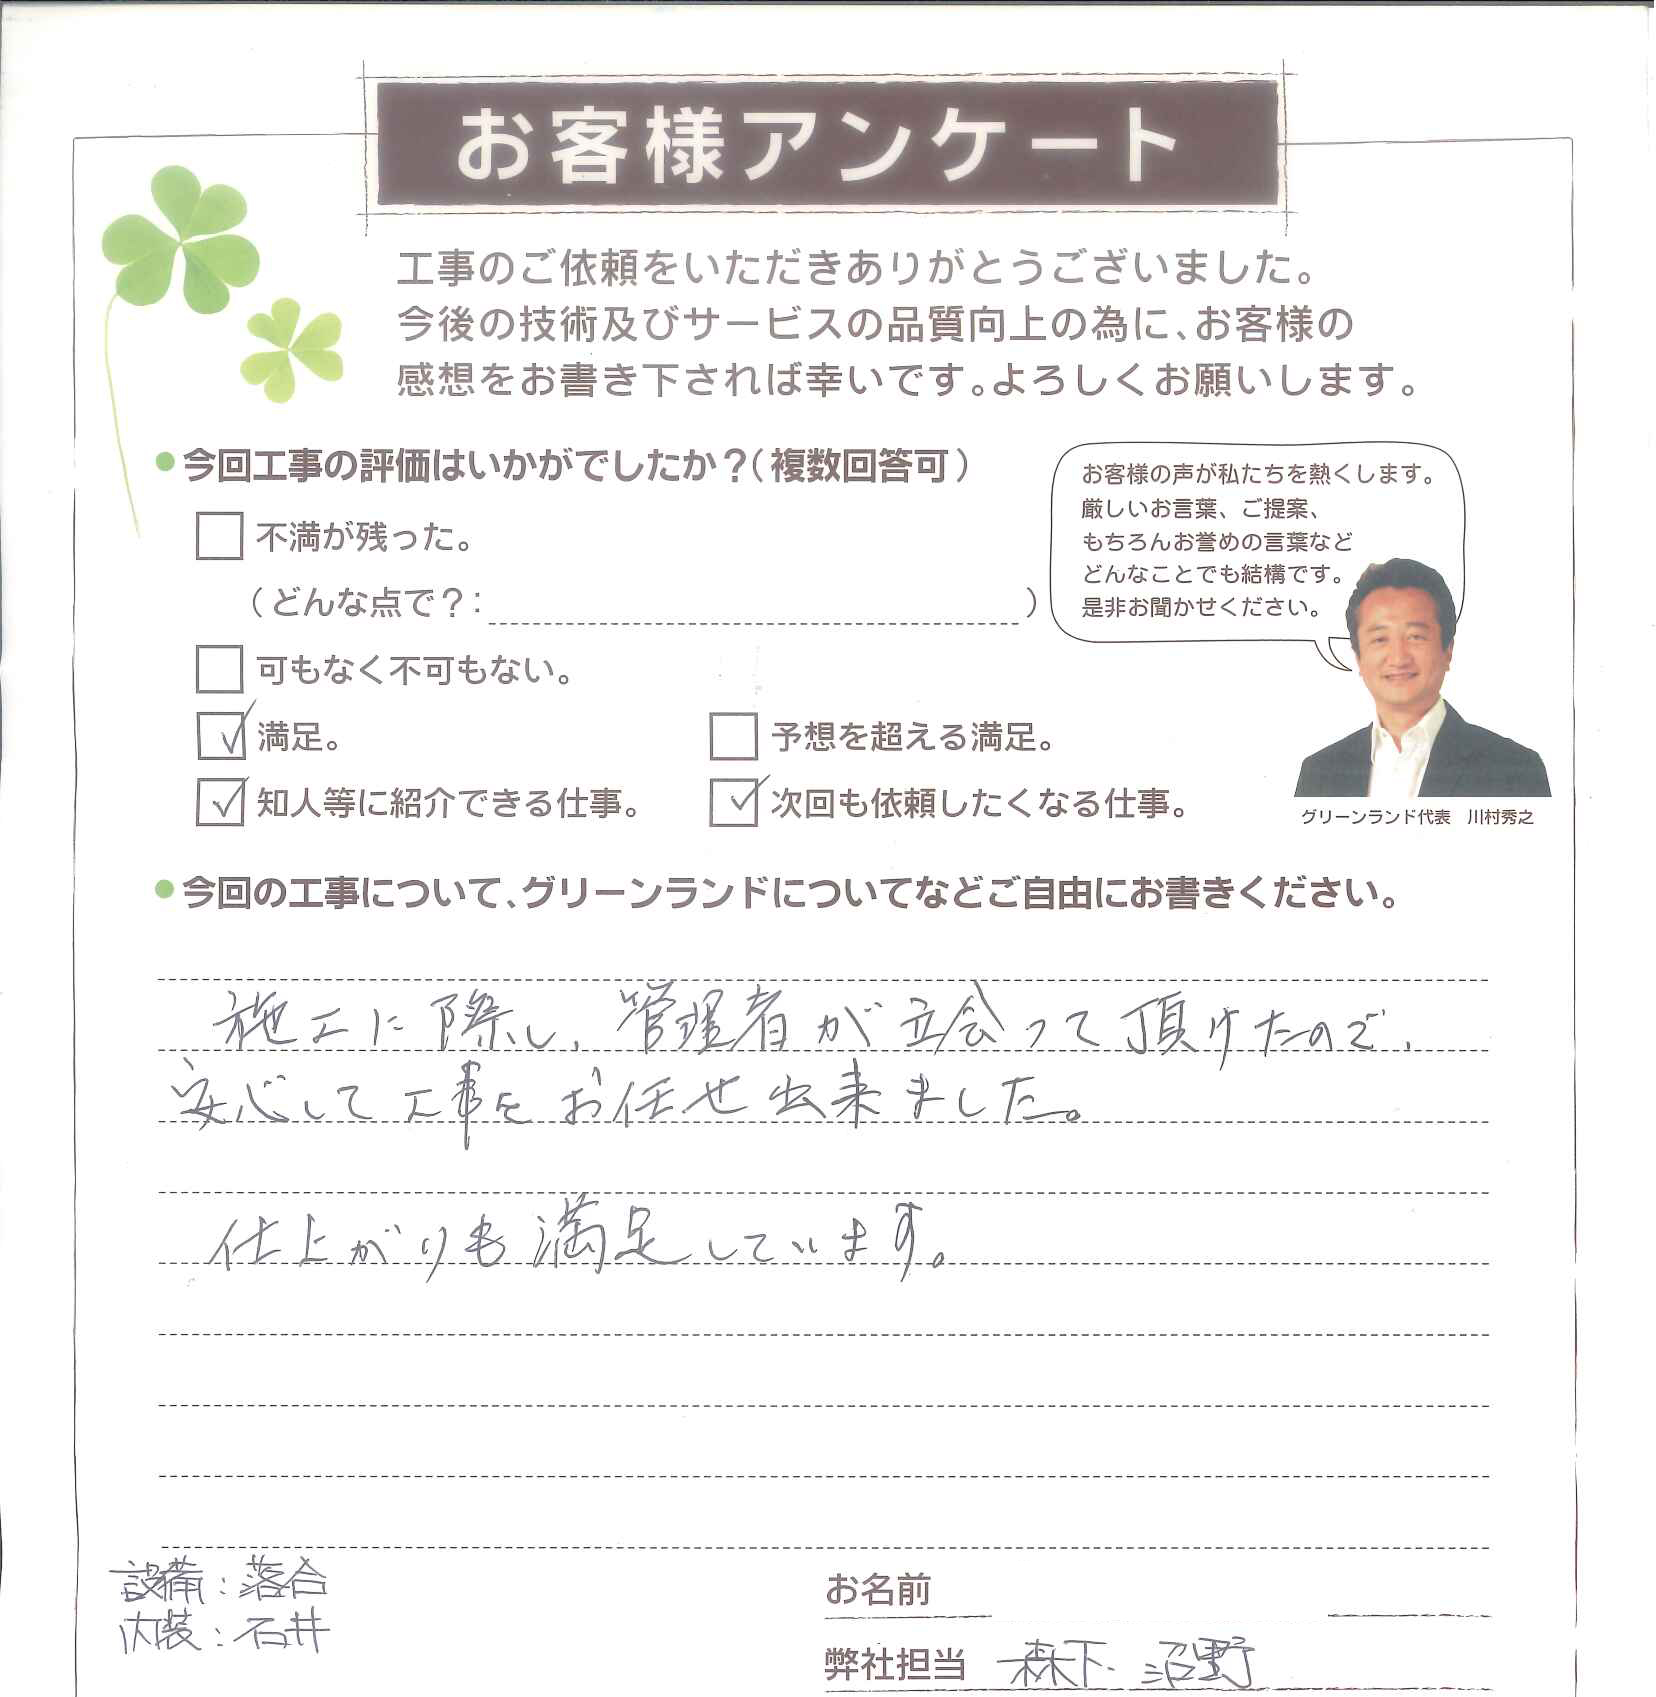 お客様アンケート
工事のご依頼をいただきありがとうございました。
今後の技術及びサービスの品質向上の為に、お客様の
感想をお書き下されば幸いです。よろしくお願いします。
●今回工事の評価はいかがでしたか？（複数回答可）
不満が残った。
（どんな点で？： ）
可もなく不可もない。
満足。
予想を超える満足。
知人等に紹介できる仕事。
次回も依頼したくなる仕事。
お客様の声が私たちを熱くします。
厳しいお言葉、ご提案、
もちろんお誉めの言葉など
どんなことでも結構です。
是非お聞かせください。
グリーンランド代表　川村秀之
●今回の工事について、グリーンランドについてなどご自由にお書きください。
施工に際し、管理者が立会って頂けたので、
安心して工事をお任せ出来ました。
仕上がりも満足しています。
設備：落合
内装：石井
お名前
弊社担当 森下. 沼野